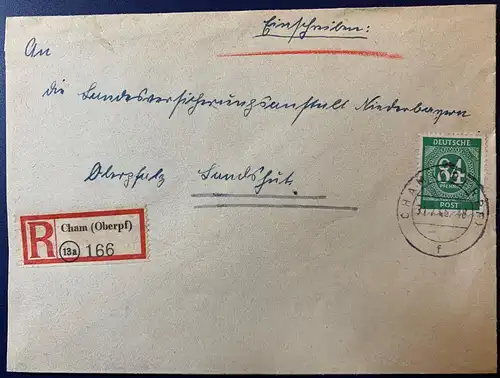 Einschreiben:
An
die Landesversicherungsanstalt Niederbayern
Oberpfalz Landshut
DEUTSCHE
84
PFENNIG
POST
R Cham (Oberpf)
13a 166
CHAM
f